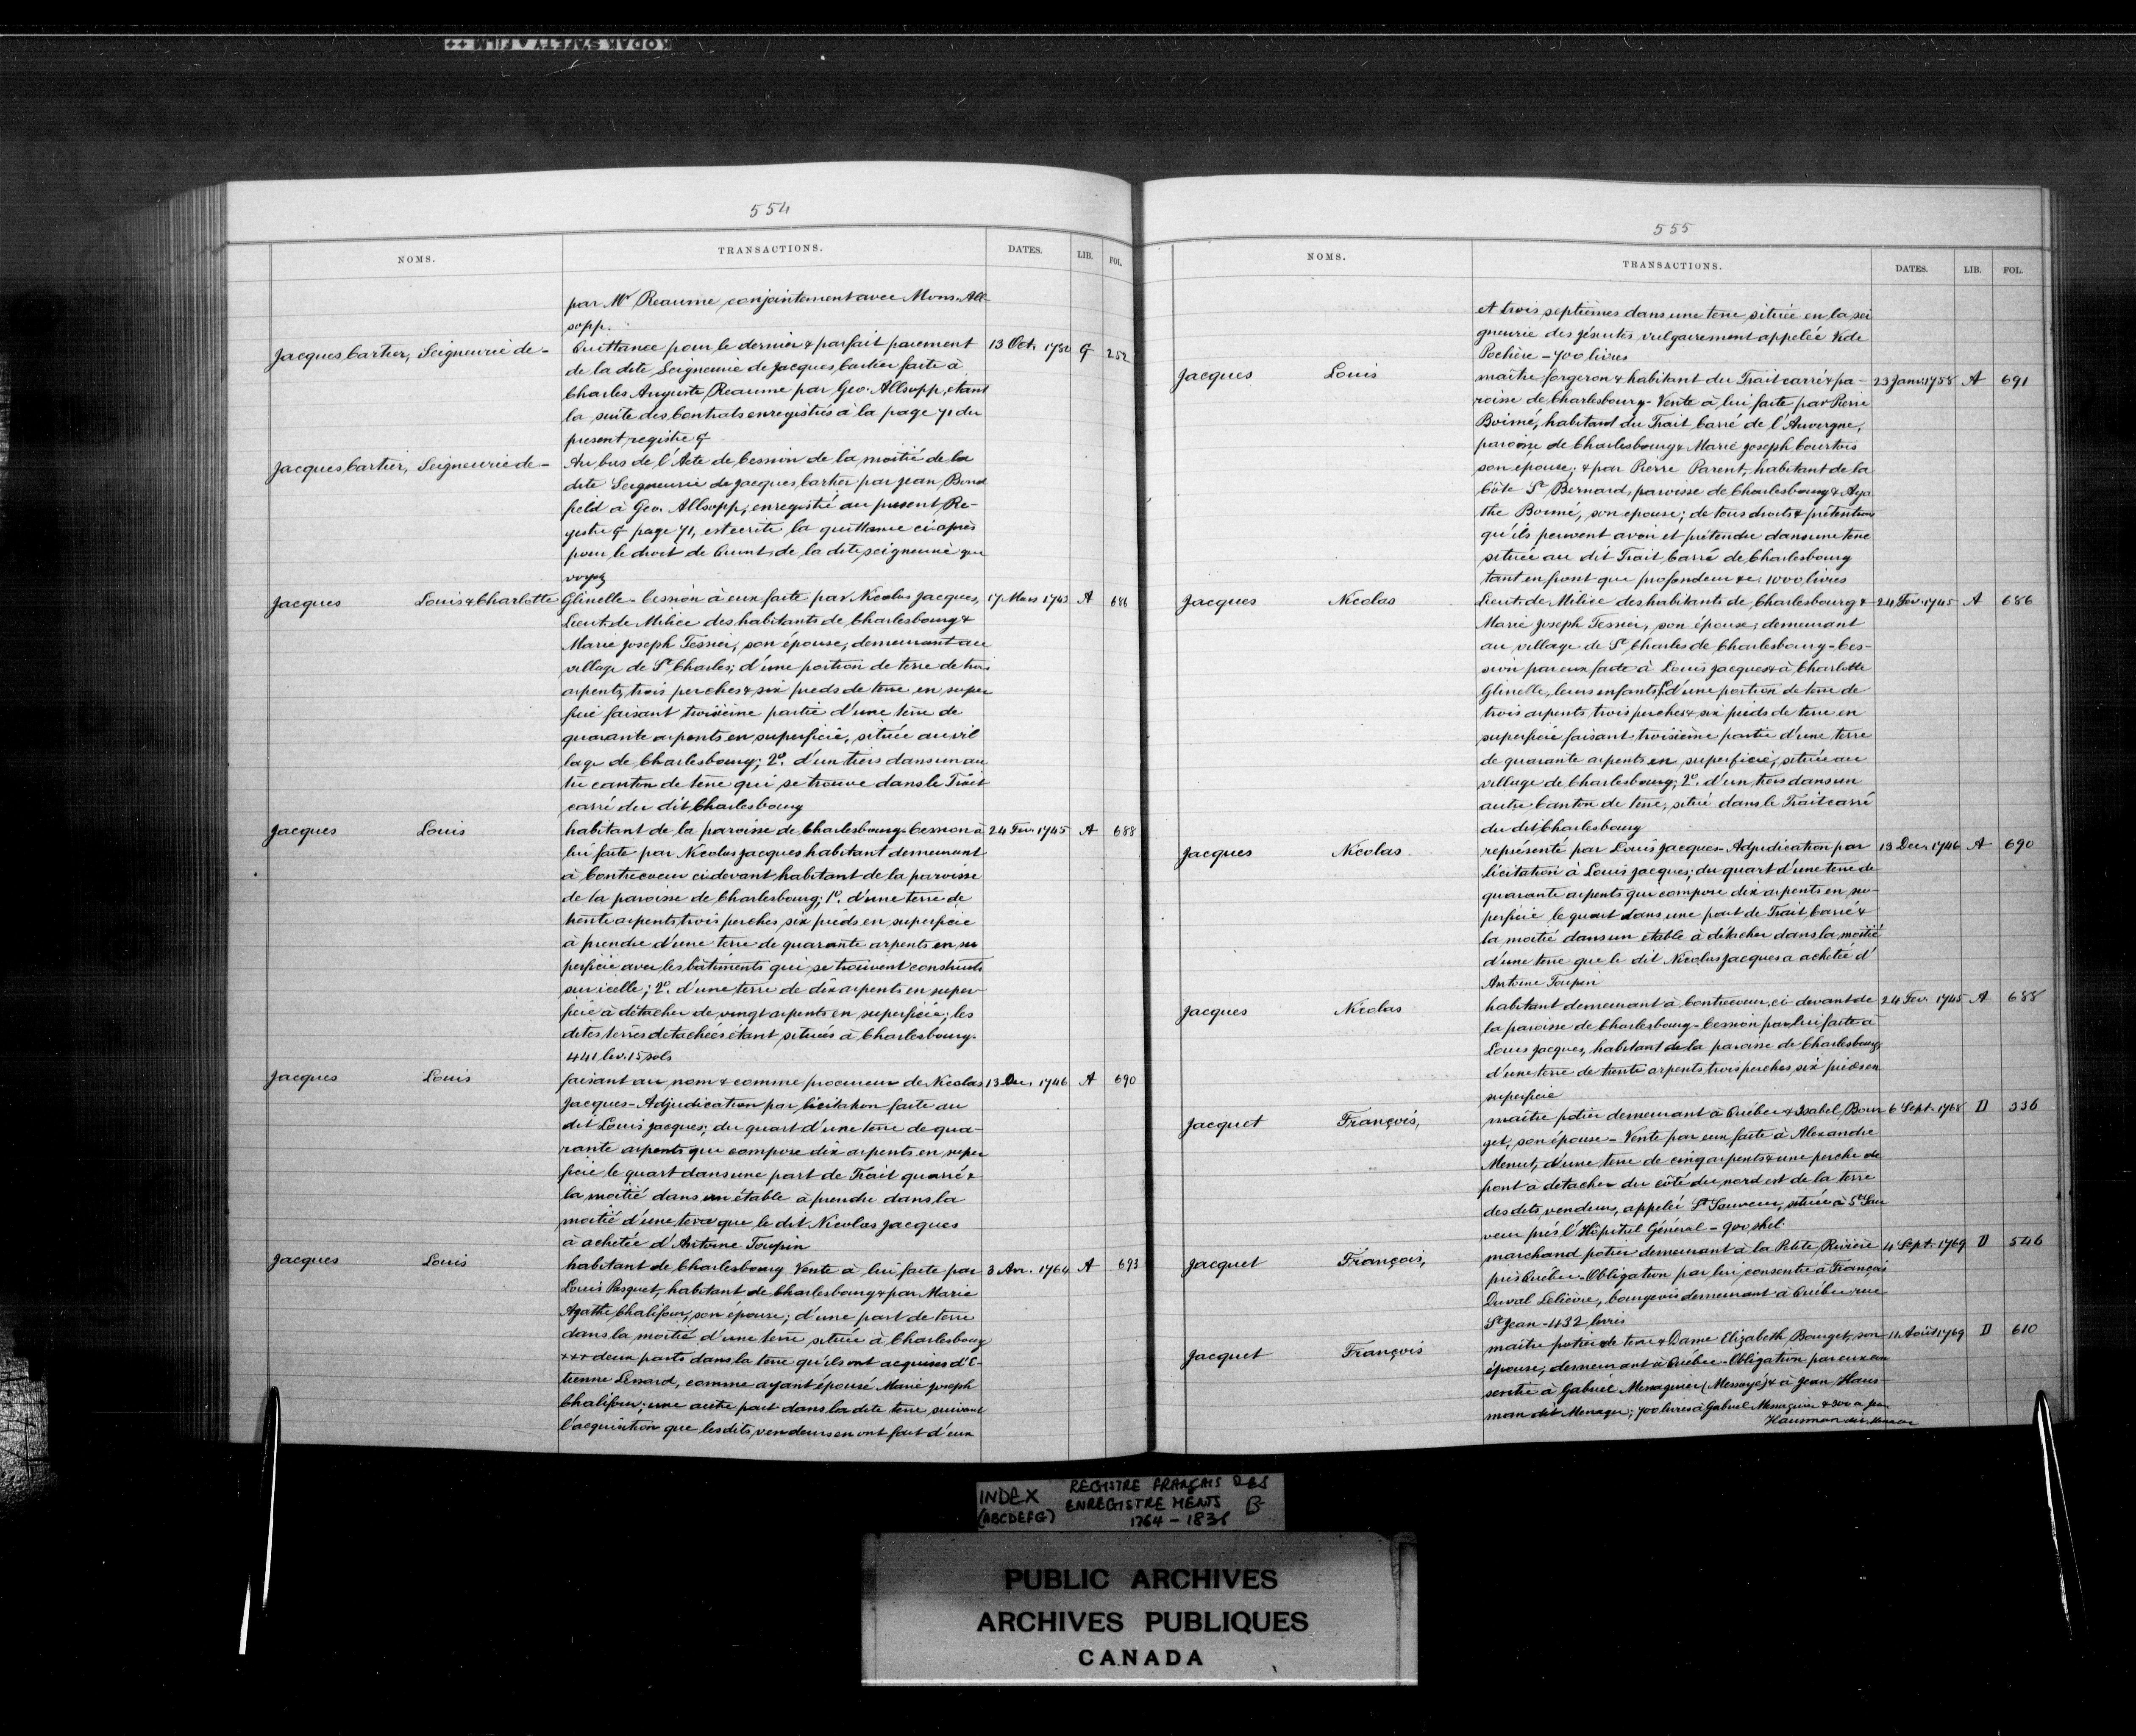 KODAK SAFETY FILM ++
554
NOMS. TRANSACTIONS. DATES. LIB. FOL.
par Mr Reaume conjointement avec Mons. All-
sopp.
Jacques Cartier, Seigneurie de - Quittance pour le dernier & parfait paiement 13 Oct. G 252
de la dite Seigneurie de Jacques Cartier faite à
Charles Auguste Reaume par Geo. Allsopp, etant
la suite des Contrats enregistrés à la page 71 du
present registre G
Jacques Cartier, Seigneurie de - Au bas de l'Acte de Cession de la moitié de la
dite Seigneurie de Jacques Cartier par Jean Bond
field à Geo. Allsopp, enregistré au present Re-
gistre G page 71, est ecrite la quittance ci après
pour le droit de Quint de la dite seigneurie que
voyez
Jacques Louis & Charlotte Glinelle - Cession à eux faite par Nicolas Jacques, 17 Mars 1743 A 686
Lieut. de Milice des habitants de Charlesbourg &
Marie Joseph Tessier, son épouse, demeurant au
village de St Charles; d'une portion de terre de trois
arpents, trois perches & six pieds de terre en super
ficie faisant troisième partie d'une terre de
quarante arpents en superficie, située au vil
lage de Charlesbourg; 2o. d'un tiers dans un au
tre canton de terre qui se trouve dans le Trait
carré du dit Charlesbourg
Jacques Louis habitant de la paroisse de Charlesbourg - Cession à 24 Fev. 1745 A 688
lui faite par Nicolas Jacques habitant demeurant
à Contrecoeur cidevant habitant de la paroisse
de la paroisse de Charlesbourg; 1o. d'une terre de
trente arpents trois perches six pieds en superficie
à prendre d'une terre de quarante arpents en su
perficie avec les bâtiments qui se trouvent construits
sur icelle; 2o. d'une terre de dix arpents en super-
ficie à détacher de vingt arpents en superficie; les
dites terres detachées étant situées à Charlesbourg -
441 liv. 15 sols
Jacques Louis faisant au nom & comme procureur de Nicolas 13 Dec. 1746 A 690
Jacques - Adjudication par licitation faite au
dit Louis Jacques; du quart d'une terre de qua-
rante arpents qui compose dix arpents en super
ficie le quart dans une part de Trait quarré &
la moitié dans un étable à prendre dans la
moitié d'une terre que le dit Nicolas Jacques
à achetée d'Antoine Toupin
Jacques Louis habitant de Charlesbourg Vente à lui faite par 3 Avr. 1764 A 693
Louis Pasquet, habitant de Charlesbourg & par Marie
Agathe Chalifour, son épouse; d'une part de terre
dans la moitié d'une terre située à Charlesbourg
+++ deux parts dans la terre qu'ils ont acquises d'E-
tienne Lessard, comme ayant épousé Marie Joseph
Chalifour; une autre part dans la dite terre suivant
l'acquisition que les dits vendeurs en ont fait d'eux
555
NOMS. TRANSACTIONS. DATES. LIB. FOL.
et trois septièmes dans une terre située en la sei
gneurie des Jésuites vulgairement appelée
- 700 livres
Jacques Louis maître forgeron & habitant du Trait carré & pa- 23 Janv. 1758 A 691
roisse de Charlesbourg - Vente à lui faite par Pierre
Boimé, habitant du Trait Carré de l'Auvergne,
paroisse de Charlesbourg & Marie Joseph Courtois
son epouse; & par Pierre Parent, habitant de la
Côte St Bernard, paroisse de Charlesbourg & Aga
the Boimé, son epouse; de tous droits & prétentions
qu'ils peuvent avoir et prétendre dans une terre
située au dit Trait Carré de Charlesbourg
tant en front que profondeur &c. 1000 livres
Jacques Nicolas Lieut. de Milice des habitants de Charlesbourg & 24 Fev. 1745 A 686
Marie Joseph Tessier, son épouse; demeurant
au village de St Charles de Charlesbourg - Ces-
sion par eux faite à Louis Jacques & à Charlotte
Glinelle, leurs enfants d'une portion de terre de
trois arpents trois perches & six pieds de terre en
superficie faisant troisième partie d'une terre
de quarante arpents en superficie, située au
village de Charlesbourg; 2o. d'un tiers dans un
autre Canton de terre, situé dans le Trait carré
du dit Charlesbourg
Jacques Nicolas représenté par Louis Jacques - Adjudication par 13 Dec. 1746 A 690
licitation à Louis Jacques; du quart d'une terre de
quarante arpents qui compose dix arpents en su-
perficie le quart dans une part de Trait Carré &
la moitié dans un etable à détacher dans la moitié
d'une terre que le dit Nicolas Jacques a achetée d'
Antoine Toupin
Jacques Nicolas habitant demeurant à Contrecoeur, ci-devant de 24 Fev. 1745 A 688
la paroisse de Charlesbourg - Cession par lui faite à
Louis Jacques, habitant de la paroisse de Charlesbourg
d'une terre de trente arpents trois perches six pieds en
superficie
Jacquet François, maître potier demeurant à Québec & Isabel Bour 6 Sept. 1768 D 536
get, son épouse - Vente par eux faite à Alexandre
Menut, d'une terre de cinq arpents & une perche de
front à détacher du côté du nord est de la terre
des dits vendeurs, appelée St Sauveur, située à St Sau
veur près l'Hôpital Général - 900 shel.
Jacquet François, marchand potier demeurant à la Petite Rivière 4 Sept. 1769 D 546
près Québec - Obligation par lui consentie à François
Duval Lelièvre, bourgeois demeurant à Québec rue
St Jean - 1432 livres
Jacquet François maître potier de terre & Dame Elizabeth Bourget, son 11 Août 1769 D 610
épouse, demeurant à Québec - Obligation par eux con
sentie à Gabriel Messaguier (Messayé) & à Jean Haus-
man dit Menager; 700 livres à Gabriel Messaguier & 300 à Jean
Hausman dit Menager
INDEX (ABCDEFG)
REGISTRE FRANÇAIS DES
ENREGISTREMENTS B
1764 - 1838
PUBLIC ARCHIVES
ARCHIVES PUBLIQUES
CANADA